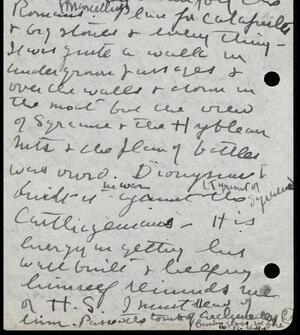 Marcellus
Romans - place for catapults
& big stones & everything -
It was quite a walk in
underground passages &
over the walls & down in
the moat but the view
of Syracuse & the Hyblean
hills & the plain of battles
was vivid. Dionysius I
(tyrant of Syracuse)
built it in war against the
Carthagenians - His
energy in getting his
wall built & helping
himself reminds me
of H.S. I must read of
him. Passed tomb of Archimedes